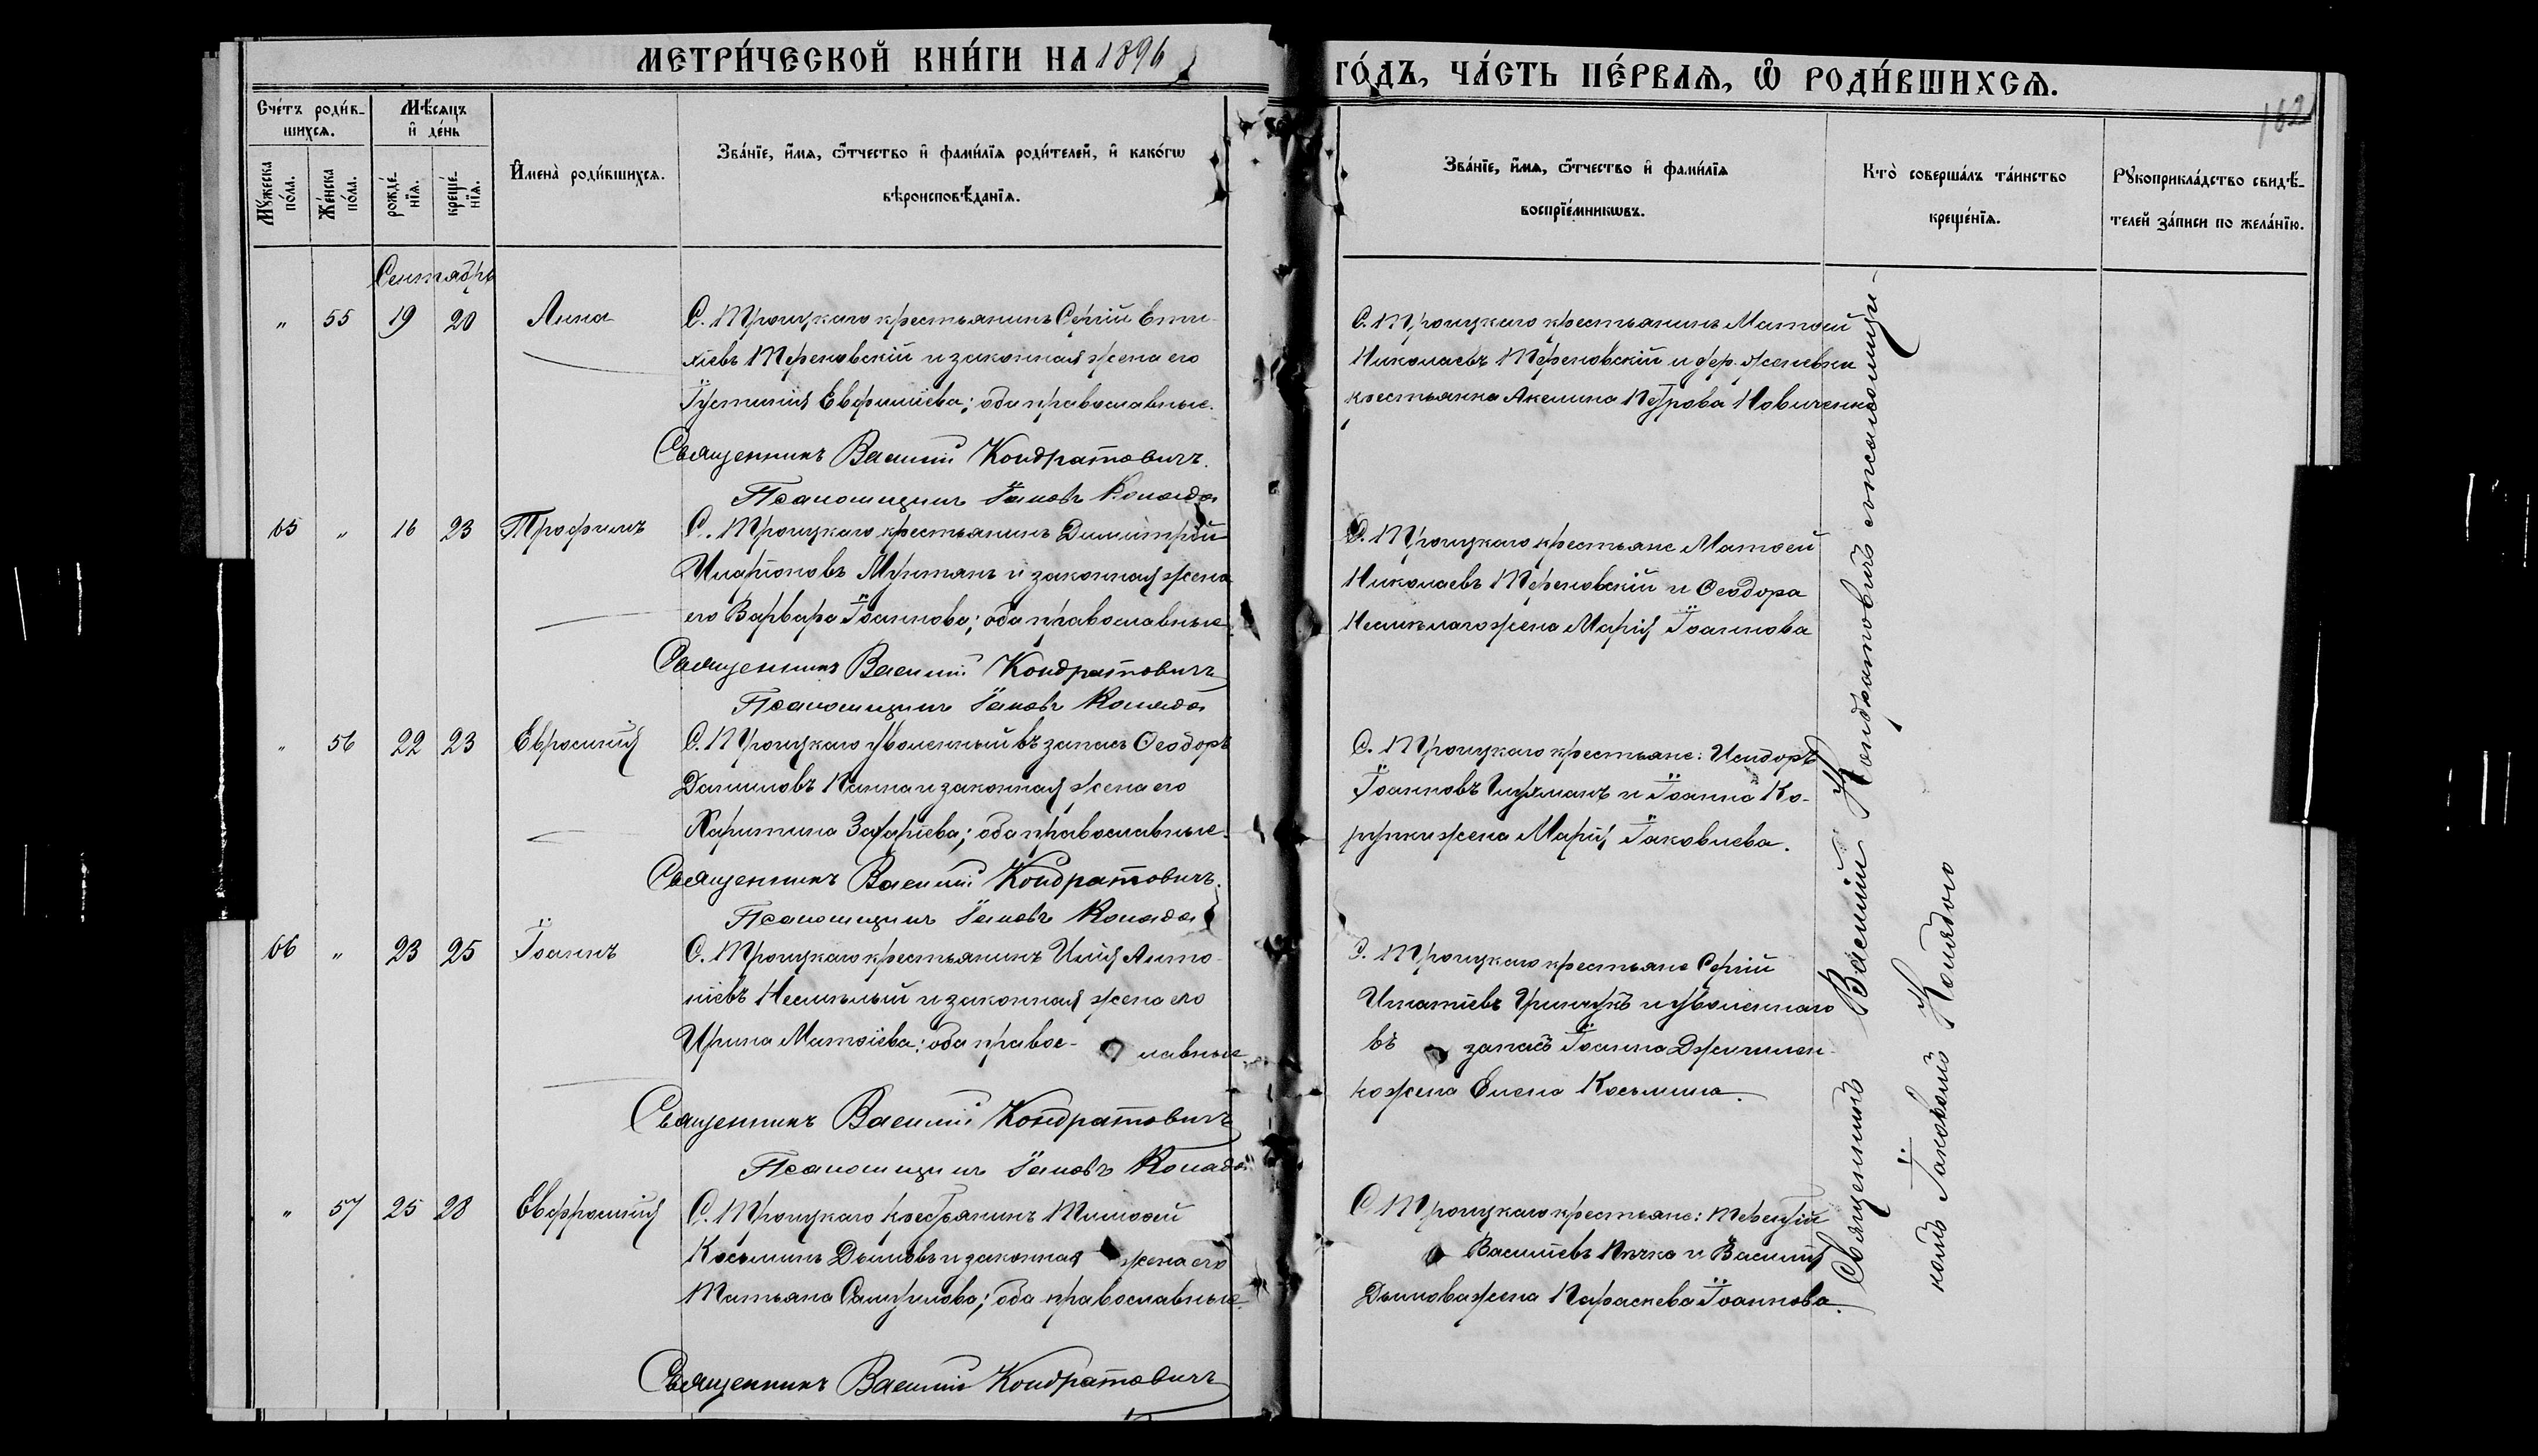 МЕТРИ́ЧЕСКОЙ КНИ́ГИ НА 1896
ГО́ДЪ, ЧА́СТЬ ПЕ́РВАЯ, Ѡ РОДИ́ВШИХСЯ.
162
Сче́тъ роди́в-
шихся.
Мѣ́сяцъ
и де́нь
Мꙋ́жеска
по́ла.
Же́нска
по́ла.
рожде́-
нїя.
креще́-
нїя.
Имена̀ роди́вшихся.
Зва́нїе, и́мя, ѻ́тчество и фами́лїя роди́телей, и како́гѡ
вѣроисповѣ́данїя.
Зва́нїе, и́мя, ѻ́тчество и фами́лїя
воспрїе́мникѡвъ.
Кто̀ соверша́лъ та́инство
креще́нїя.
Рꙋкоприкла́дство свидѣ́-
телей за́писи по жела́нїю.
Сентябрь
" 55 19 20 Анна
С. Троицкаго крестьянинъ Сергій
Терновскій и законная жена его
Іустинія Евфиміева; оба православные.
Священникъ Василій Кондратовичъ.
Псаломщикъ Іаковъ Коляда
С. Троицкаго крестьянинъ Матѳей
Николаевъ Терновскій и дер.
крестьянка Акелина Петрова Новиченко
65 " 16 23 Трофимъ
С. Троицкаго крестьянинъ Димитрій
Иларіоновъ Мунтянъ и законная жена
его Варвара Іоаннова; оба православные.
Священникъ Василій Кондратовичъ
Псаломщикъ Іаковъ Коляда
С. Троицкаго крестьяне Матѳей
Николаевъ Терновскій и Ѳеодора
жена Марія Іоаннова
" 56 22 23 Евросинія
С. Троицкаго уволенный въ запасъ Ѳеодоръ
Даниловъ и законная жена его
Харитина Захаріева; оба православные.
Священникъ Василій Кондратовичъ.
Псаломщикъ Іаковъ Коляда
С. Троицкаго крестьяне: Исидоръ
Іоанновъ и Іоанна Ко-
жена Марія Іаковлева.
66 " 23 25 Іоаннъ
С. Троицкаго крестьянинъ Илія Анто-
ніевъ и законная жена его
Ирина Матѳіева; оба правос-лавные
Священникъ Василій Кондратовичъ
Псаломщикъ Іаковъ Коляда
С. Троицкаго крестьяне Сергій
Игнатіевъ и уволеннаго
въ запасъ Іоанна
жена Елена Косьмина.
" 57 25 28 Евфросинія
С. Троицкаго крестьянинъ Тимоѳей
Косьминъ Дымовъ и законная жена его
Татьяна Самуилова; оба православные.
Священникъ Василій Кондратовичъ
С. Троицкаго крестьяне: Терентій
Василіевъ и Василія
Дымова жена Параскева Іоаннова.
Священникъ Василій Кондратовичъ съ псаломщи-
комъ Іаковомъ Колядою